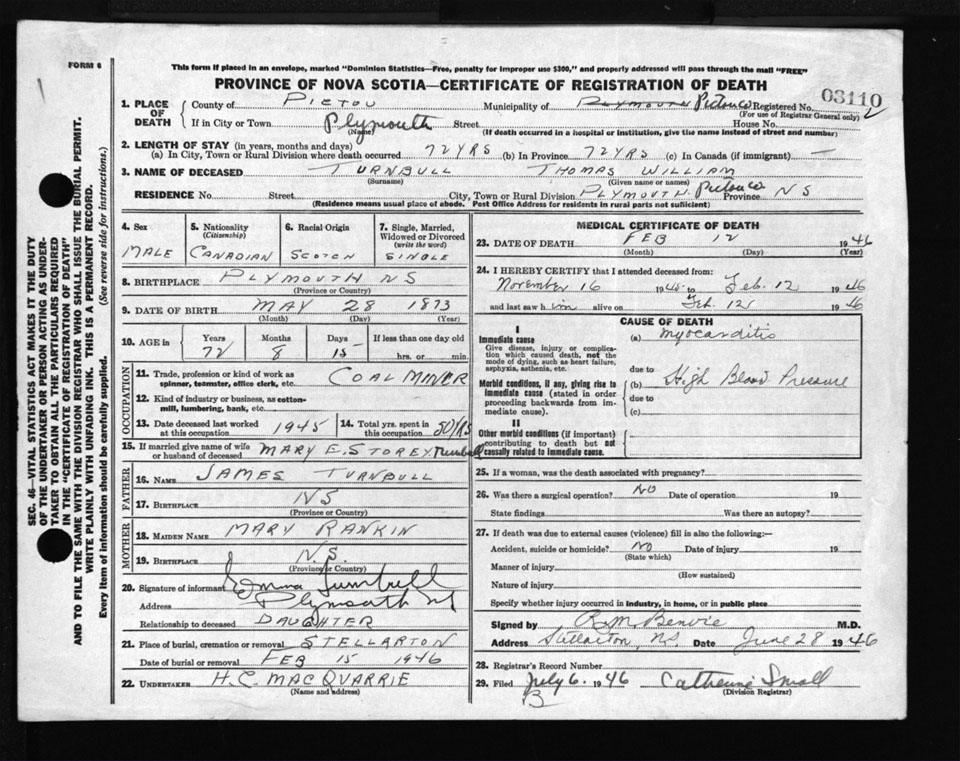 FORM 6
This form if placed in an envelope, marked "Dominion Statistics—Free, penalty for improper use $300," and properly addressed will pass through the mail "FREE"
PROVINCE OF NOVA SCOTIA—CERTIFICATE OF REGISTRATION OF DEATH
03110
1. PLACE OF DEATH County of PICTOU Municipality of PLYMOUTH Pictou Co Registered No.
(For use of Registrar General only)
If in City or Town Plymouth Street House No.
(Name) (If death occurred in a hospital or institution, give the name instead of street and number)
2. LENGTH OF STAY (in years, months and days)
(a) In City, Town or Rural Division where death occurred 72 YRS (b) In Province 72 YRS (c) In Canada (if immigrant) —
3. NAME OF DECEASED TURNBULL THOMAS WILLIAM
(Surname) (Given name or names)
RESIDENCE No. Street City, Town or Rural Division PLYMOUTH Pictou Co Province NS
(Residence means usual place of abode. Post Office Address for residents in rural parts not sufficient)
4. Sex 5. Nationality (Citizenship) 6. Racial Origin 7. Single, Married, Widowed or Divorced (write the word)
MALE CANADIAN SCOTCH SINGLE
8. BIRTHPLACE PLYMOUTH NS
(Province or Country)
9. DATE OF BIRTH MAY 28 1873
(Month) (Day) (Year)
10. AGE in Years Months Days If less than one day old
72 8 15 hrs. or min.
OCCUPATION
11. Trade, profession or kind of work as spinner, teamster, office clerk, etc. COAL MINER
12. Kind of industry or business, as cotton-mill, lumbering, bank, etc.
13. Date deceased last worked at this occupation 1945 14. Total yrs. spent in this occupation 50 YRS
15. If married give name of wife or husband of deceased MARY E. STOREY Turnbull
FATHER
16. NAME JAMES TURNBULL
17. BIRTHPLACE NS
(Province or Country)
MOTHER
18. MAIDEN NAME MARY RANKIN
19. BIRTHPLACE NS
(Province or Country)
20. Signature of informant Emma Turnbull
Address Plymouth NS
Relationship to deceased DAUGHTER
21. Place of burial, cremation or removal STELLARTON
Date of burial or removal FEB 15 1946
22. UNDERTAKER H.C. MACQUARRIE
(Name and address)
MEDICAL CERTIFICATE OF DEATH
23. DATE OF DEATH FEB 12 1946
(Month) (Day) (Year)
24. I HEREBY CERTIFY that I attended deceased from:
November 16 1945 to Feb. 12 1946
and last saw him alive on Feb. 12 1946
CAUSE OF DEATH
I
Immediate cause (a) Myocarditis
Give disease, injury or complication which caused death, not the mode of dying, such as heart failure, asphyxia, asthenia, etc.
due to
Morbid conditions, if any, giving rise to immediate cause (stated in order proceeding backwards from immediate cause). (b) High Blood Pressure
due to
(c)
II
Other morbid conditions (if important) contributing to death but not causally related to immediate cause.
25. If a woman, was the death associated with pregnancy?
26. Was there a surgical operation? NO Date of operation 19
State findings Was there an autopsy?
27. If death was due to external causes (violence) fill in also the following:—
Accident, suicide or homicide? NO Date of injury 19
(State which)
Manner of injury
(How sustained)
Nature of injury
Specify whether injury occurred in industry, in home, or in public place
Signed by R.M. Benvie M.D.
Address Stellarton, N.S. Date June 28 1946
28. Registrar's Record Number
29. Filed July 6. 1946 Catherine Small
(Division Registrar)
SEC. 46—VITAL STATISTICS ACT MAKES IT THE DUTY
OF THE UNDERTAKER OR PERSON ACTING AS UNDER-
TAKER TO OBTAIN ALL THE PARTICULARS REQUIRED
IN THE "CERTIFICATE OF REGISTRATION OF DEATH" AND
TO FILE THE SAME WITH THE DIVISION REGISTRAR WHO SHALL ISSUE THE BURIAL PERMIT.
WRITE PLAINLY WITH UNFADING INK. THIS IS A PERMANENT RECORD.
Every item of information should be carefully supplied. (See reverse side for instructions.)